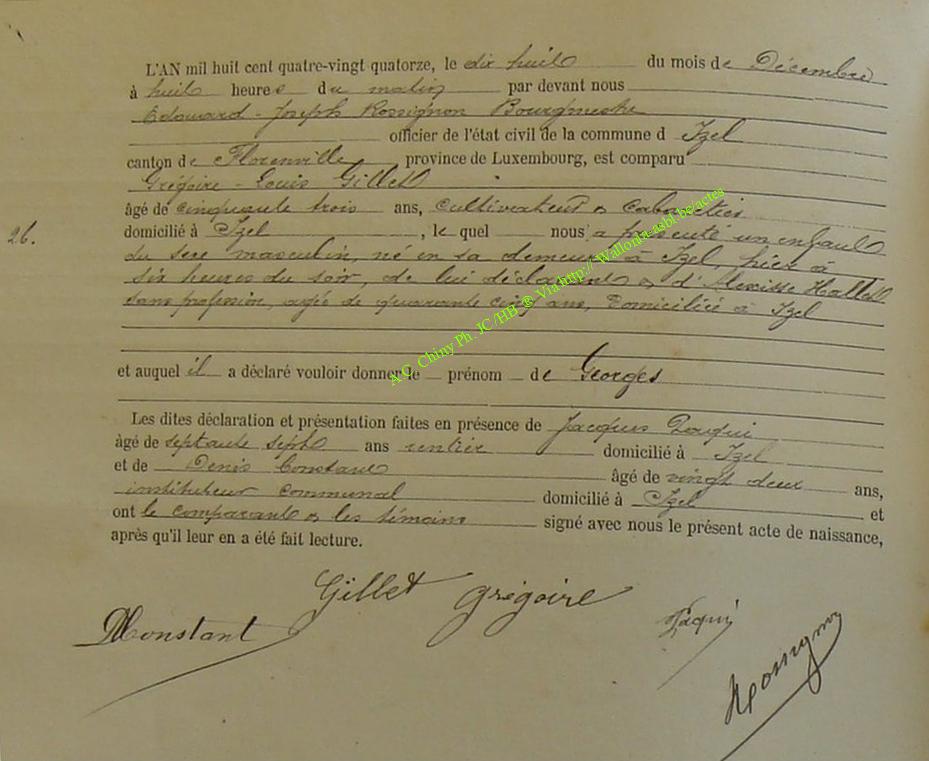 L'AN mil huit cent quatre-vingt quatorze, le dix huit du mois de Décembre
à huit heures du matin par devant nous
Edouard-Joseph Rossignon Bourgmestre
officier de l'état civil de la commune d Izel
canton de Florenville province de Luxembourg, est comparu
Grégoire-Louis Gillet
âgé de cinquante trois ans, cultivateur & cabaretier
26.
domicilié à Izel, le quel nous a présenté un enfant
du sexe masculin, né en sa demeure à Izel, hier à
six heures du soir, de lui déclarant & d'
sans profession, agée de quarante cinq ans, domiciliée à Izel
et auquel il a déclaré vouloir donner le prénom de Georges
Les dites déclaration et présentation faites en présence de Jacques
âgé de septante sept ans rentier domicilié à Izel
et de Denis Constant âgé de vingt deux ans,
instituteur communal domicilié à Izel et
ont le comparant & les témoins signé avec nous le présent acte de naissance,
après qu'il leur en a été fait lecture.
Gillet Grégoire
DConstant
Rossignon
A.C. Chiny Ph. JC /HB ® Via http:// Wallonia-asbl.be/actes